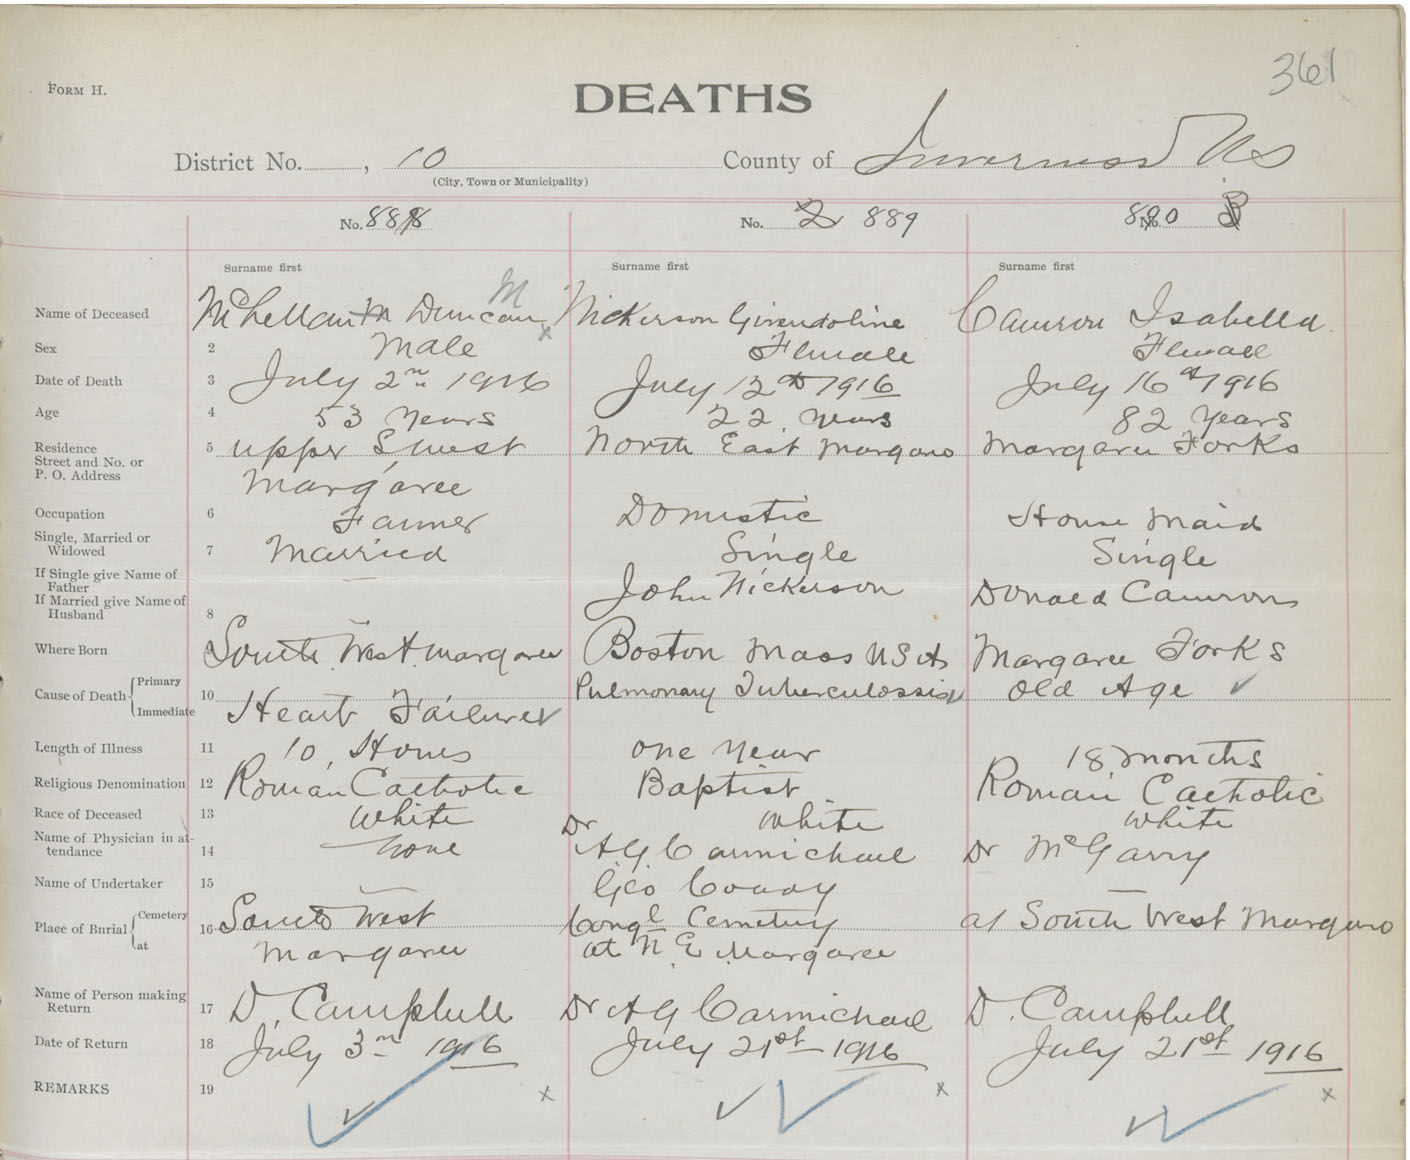 361
FORM H.
DEATHS
District No. , 10 County of Inverness NS
(City, Town or Municipality)
No. 888 No. 2 889 No. 890 3
Surname first Surname first Surname first
M
Name of Deceased McLellan Duncan x Nickerson Girendoline Camron Isabella
Sex 2 Male Female Female
Date of Death 3 July 2nd 1916 July 12th 1916 July 16th 1916
Age 4 53 Years 22 Years 82 Years
Residence 5 upper S West North East Margaree Margaree Forks
Street and No. or
P. O. Address Margaree
Occupation 6 Farmer Domestic House Maid
Single, Married or
Widowed 7 Married Single Single
If Single give Name of
Father — John Nickerson Donald Camron
If Married give Name of
Husband 8
Where Born South West Margaree Boston Mass USA Margaree Forks
Cause of Death Primary Pulmonary Tuberculossis Old Age ✓
Immediate 10 Heart Failure ✓
Length of Illness 11 10 Hours one Year 18 months
Religious Denomination 12 Roman Catholic Baptist Roman Catholic
Race of Deceased 13 White White White
Name of Physician in at-
tendance 14 None Dr A G Carmichael Dr McGarry
Name of Undertaker 15 — Geo Coady —
Place of Burial Cemetery 16 South West Congl Cemetery at South West Margaree
at Margaree at N E Margaree
Name of Person making
Return 17 D. Campbell Dr A G Carmichael D. Campbell
Date of Return 18 July 3rd 1916 July 21st 1916 July 21st 1916
REMARKS 19 x x x